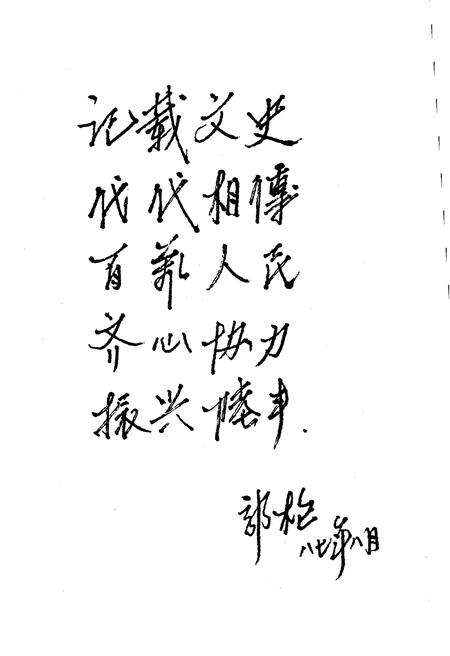 记载文史
代代相傳
百万人民
齐心协力
振兴陸丰.
八七年八月